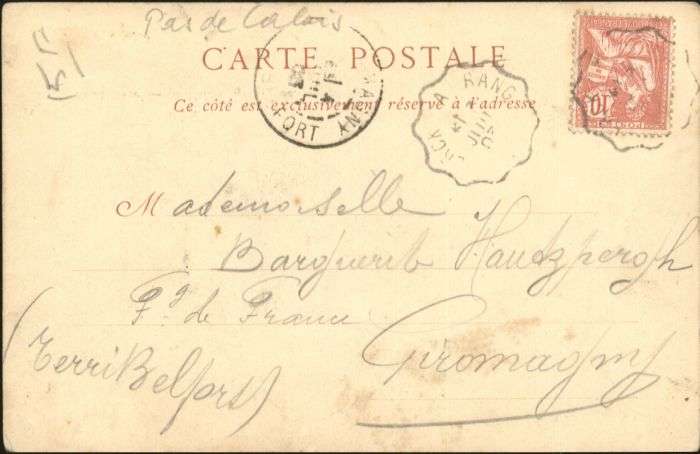 Pas de Calais
15
CARTE POSTALE
Ce côté est exclusivement réservé à l'adresse
FORT
A RANG
JUIL
10
POSTES
Mademoiselle
Barguerib Hautzpergh
Fg de France
Giromagny
(Terri Belfort)